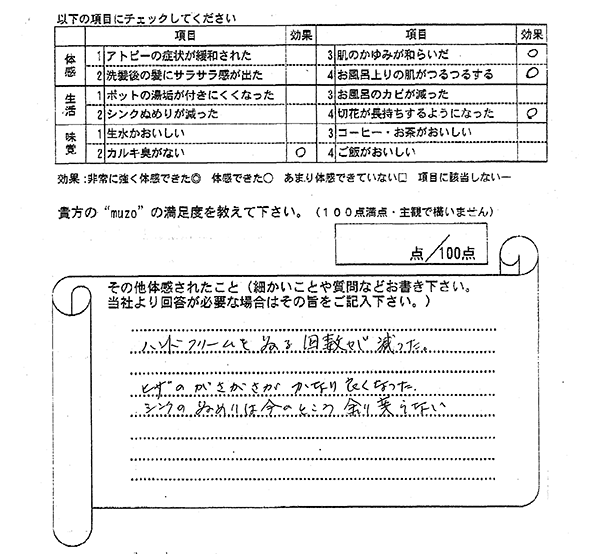 以下の項目にチェックしてください
項目 効果 項目 効果
体感 1 アトピーの症状が緩和された 3 肌のかゆみが和らいだ ○
2 洗髪後の髪にサラサラ感が出た 4 お風呂上りの肌がつるつるする ○
生活 1 ポットの湯垢が付きにくくなった 3 お風呂のカビが減った
2 シンクぬめりが減った 4 切花が長持ちするようになった ○
味覚 1 生水かおいしい 3 コーヒー・お茶がおいしい
2 カルキ臭がない ○ 4 ご飯がおいしい
効果:非常に強く体感できた◎ 体感できた○ あまり体感できていない□ 項目に該当しないー
貴方の“muzo”の満足度を教えて下さい。(100点満点・主観で構いません)
点/100点
その他体感されたこと(細かいことや質問などお書き下さい。
当社より回答が必要な場合はその旨をご記入下さい。)
ハンドクリームを ぬる 回数が 減った。
ヒザの がさがさが かなり 良くなった.
シンクの ぬめりは今のところ 余り 変らない